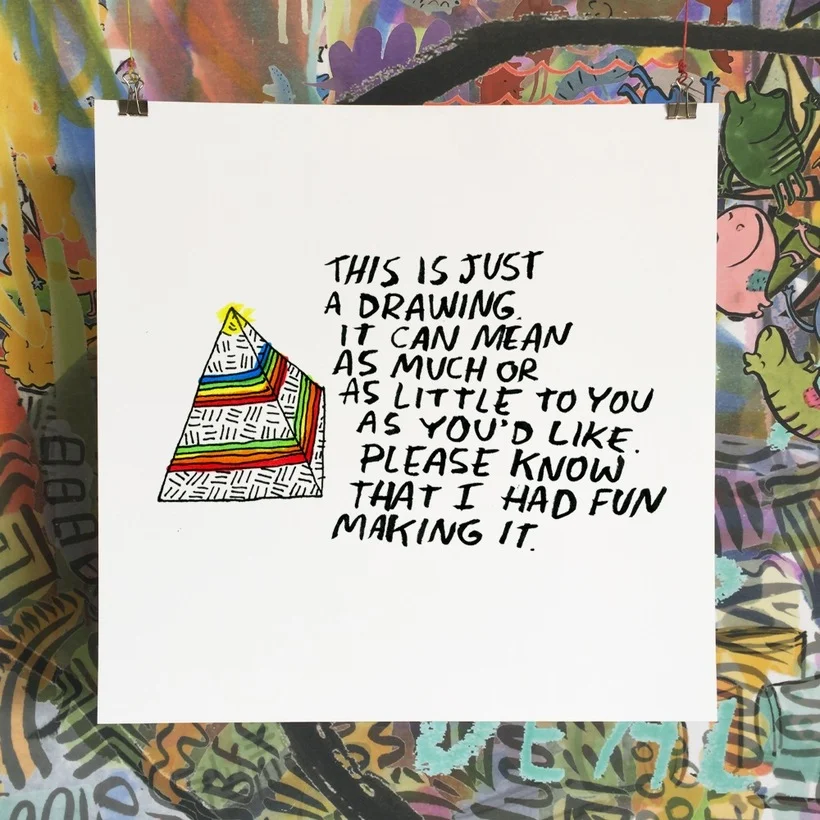 THIS IS JUST
A DRAWING.
IT CAN MEAN
AS MUCH OR
AS LITTLE TO YOU
AS YOU'D LIKE.
PLEASE KNOW
THAT I HAD FUN
MAKING IT.
DEAL